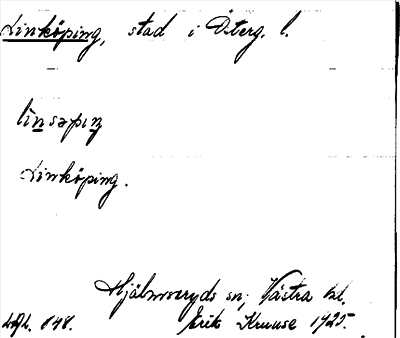 Linköping, stad i Österg. l.
lin̲səpiŋ
Linköping.
Hjälmseryds sn, Västra hd.
848.
Erik Kruuse 1925.